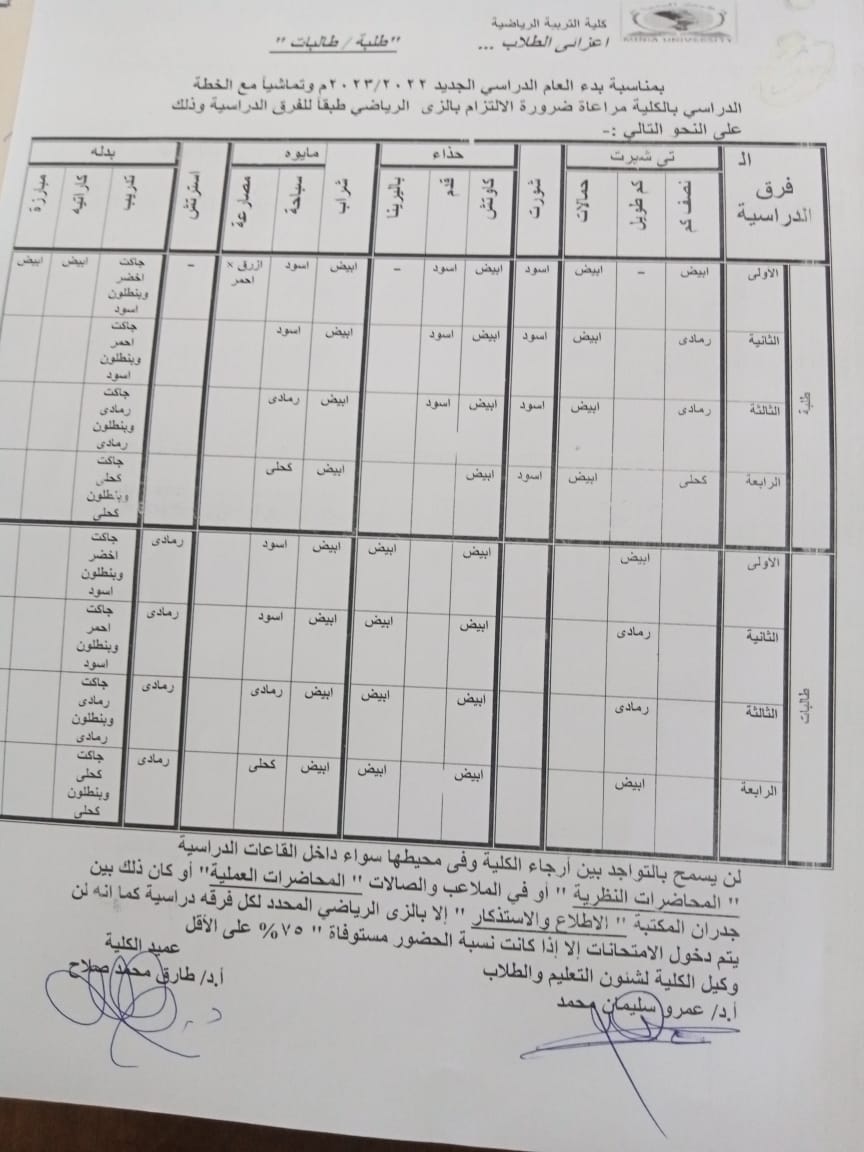 كلية التربية الرياضية
MINIA UNIVERSITY
اعزائى الطلاب ... "طلبة / طالبات"
بمناسبة بدء العام الدراسي الجديد ٢٠٢٣/٢٠٢٢م وتماشياً مع الخطة
الدراسي بالكلية مراعاة ضرورة الالتزام بالزى الرياضي طبقاً للفرق الدراسية وذلك
على النحو التالي :-
الـ فرق الدراسية تي شيرت حذاء مايوه بدله
نصف كم كم طويل حمالات شورت كاوتش قدم باليرينا شراب سباحة مصارعة استرتش تدريب كاراتيه مبارزة
طلبة
الاولى ابيض – ابيض اسود ابيض اسود – ابيض اسود ازرق × احمر – جاكت اخضر وبنطلون اسود ابيض ابيض
الثانية رمادى ابيض اسود ابيض اسود ابيض اسود جاكت احمر وبنطلون اسود
الثالثة رمادى ابيض اسود ابيض اسود ابيض رمادى جاكت رمادى وبنطلون رمادى
الرابعة كحلى ابيض اسود ابيض ابيض كحلى جاكت كحلى وبنطلون كحلى
طالبات
الاولى ابيض ابيض ابيض ابيض اسود رمادى جاكت اخضر وبنطلون اسود
الثانية رمادى ابيض ابيض ابيض اسود رمادى جاكت احمر وبنطلون اسود
الثالثة رمادى ابيض ابيض ابيض رمادى رمادى جاكت رمادى وبنطلون رمادى
الرابعة ابيض ابيض ابيض ابيض كحلى رمادى جاكت كحلى وبنطلون كحلى
لن يسمح بالتواجد بين أرجاء الكلية وفى محيطها سواء داخل القاعات الدراسية
" المحاضرات النظرية " أو في الملاعب والصالات " المحاضرات العملية" أو كان ذلك بين
جدران المكتبة " الاطلاع والاستذكار " إلا بالزى الرياضي المحدد لكل فرقه دراسية كما انه لن
يتم دخول الامتحانات إلا إذا كانت نسبة الحضور مستوفاة " ٧٥% على الأقل
وكيل الكلية لشئون التعليم والطلاب
أ.د/ عمرو سليمان محمد
عميد الكلية
أ.د/ طارق محمد صلاح